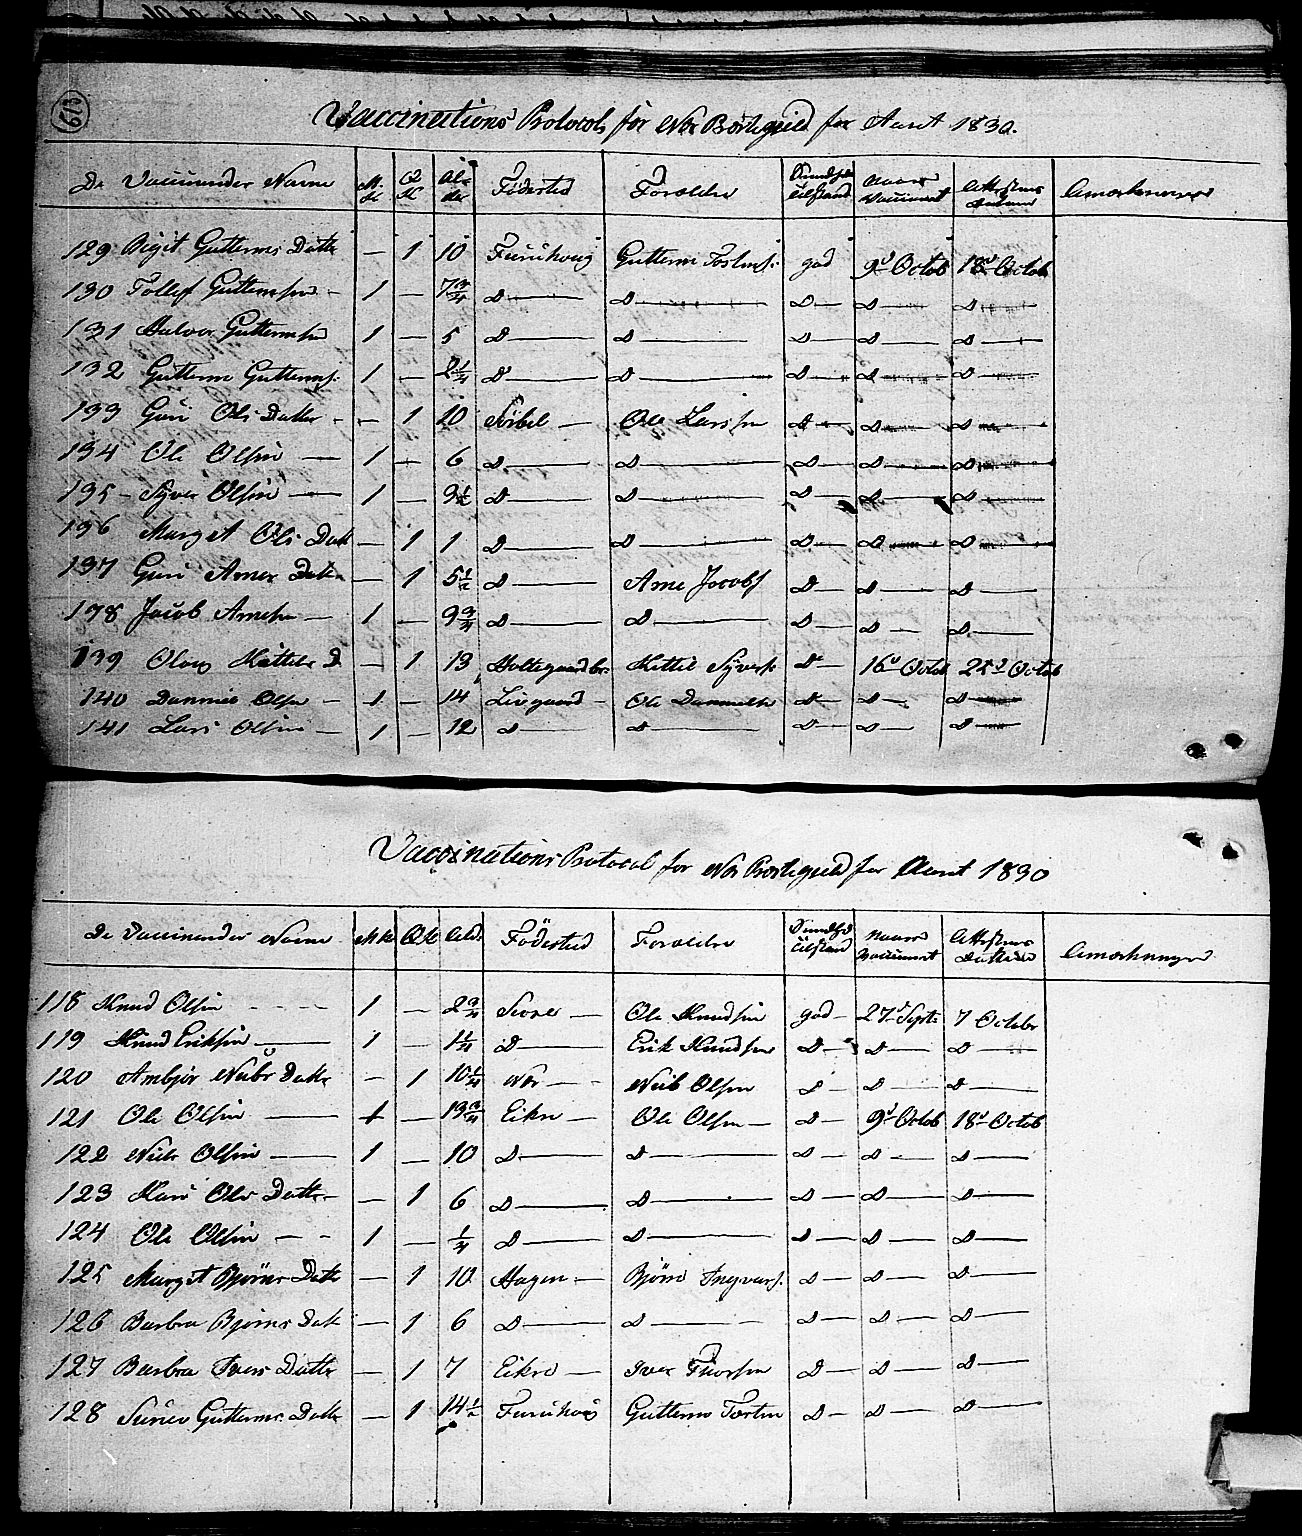 613
Vaccinations Protocol for Nór Börtegield for Aaret 1830.
De Vaccinender Navne | M. K. | Q. K. | Al-der | Födested | Forældre | Sundheds tilstand | Naar Vaccineret | Attestens Datum | Anmærkninger
129 Birgit Guttorms Datte — 1 10 Furuhoug Guttorm Tostens. god 9d Octob 18d Octob
130 Tollef Guttormsen — 1 — 7 3/4 D — D — D — D — D —
131 Halvor Guttormsen 1 — 5 D — D — D — D — D —
132 Guttorm Guttorms. 1 — 2 1/4 D — D — D — D — D —
133 Guri Ols Datter — — 1 10 Ole Larssen D — D — D —
134 Ole Olsen — 1 — 6 D — D — D — D — D —
135 – Syver Olsen — 1 — 3 1/2 D — D — D — D — D —
136 Margit Ols Datt — 1 1 D — D — D — D — D —
137 Guri Arnes Datte — 1 5 1/2 D — Arne Jacobs D — D — D —
138 Jacob Arnesen — 1 — 3 3/4 D — D — D — D — D —
139 Oloug Kittils D — 1 13 Kittil Syvers. D — 16d Octob 25d Octob
140 Dannil Olsen — 1 — 14 Livgaard — Ole Dannielsen D — D — D —
141 Lars Olsen — 1 — 12 D — D — D — D — D —
Vaccinations Protocol for Nór Börtegield for Aaret 1830
De Vaccinender Navne | M K | Q K | Alder | Födested | Forældre | Sundheds tilstand | Naar Vaccineret | Attestens Datum | Anmærkninger
118 Knud Olsen - - - - 1 — 2 3/4 Ole Knudsen god — 27d Septr 7 Octobr
119 Knud Eriksen — 1 — 1 1/4 D — Erik Knudsen D — D — D —
120 Ambjør Nubs Datte — 1 10 1/4 Nór — Olsen D — D — D —
121 Ole Olsen — 1 — 13 3/4 Eikre — Ole Olsen — D — 9d Octob 18d Octob
122 Olsen — 1 — 10 D — D — D — D — D —
123 Kari Ols Datte — — 1 6 D — D — D — D — D —
124 Ole Olsen — - 1 — 1/4 D — D — D — D — D —
125 Margit Bjørns Datte — 1 10 Hagen — Bjørn Ingvars. D — D — D —
126 Barbra Bjørns Dat — 1 6 D — D — D — D — D —
127 Barbra Ivers Datte — 1 7 Eikre — Iver Thorsen D — D — D —
128 Guttorms Datte — 1 14 1/2 Furuhoug Guttorm Tosten D — D — D —